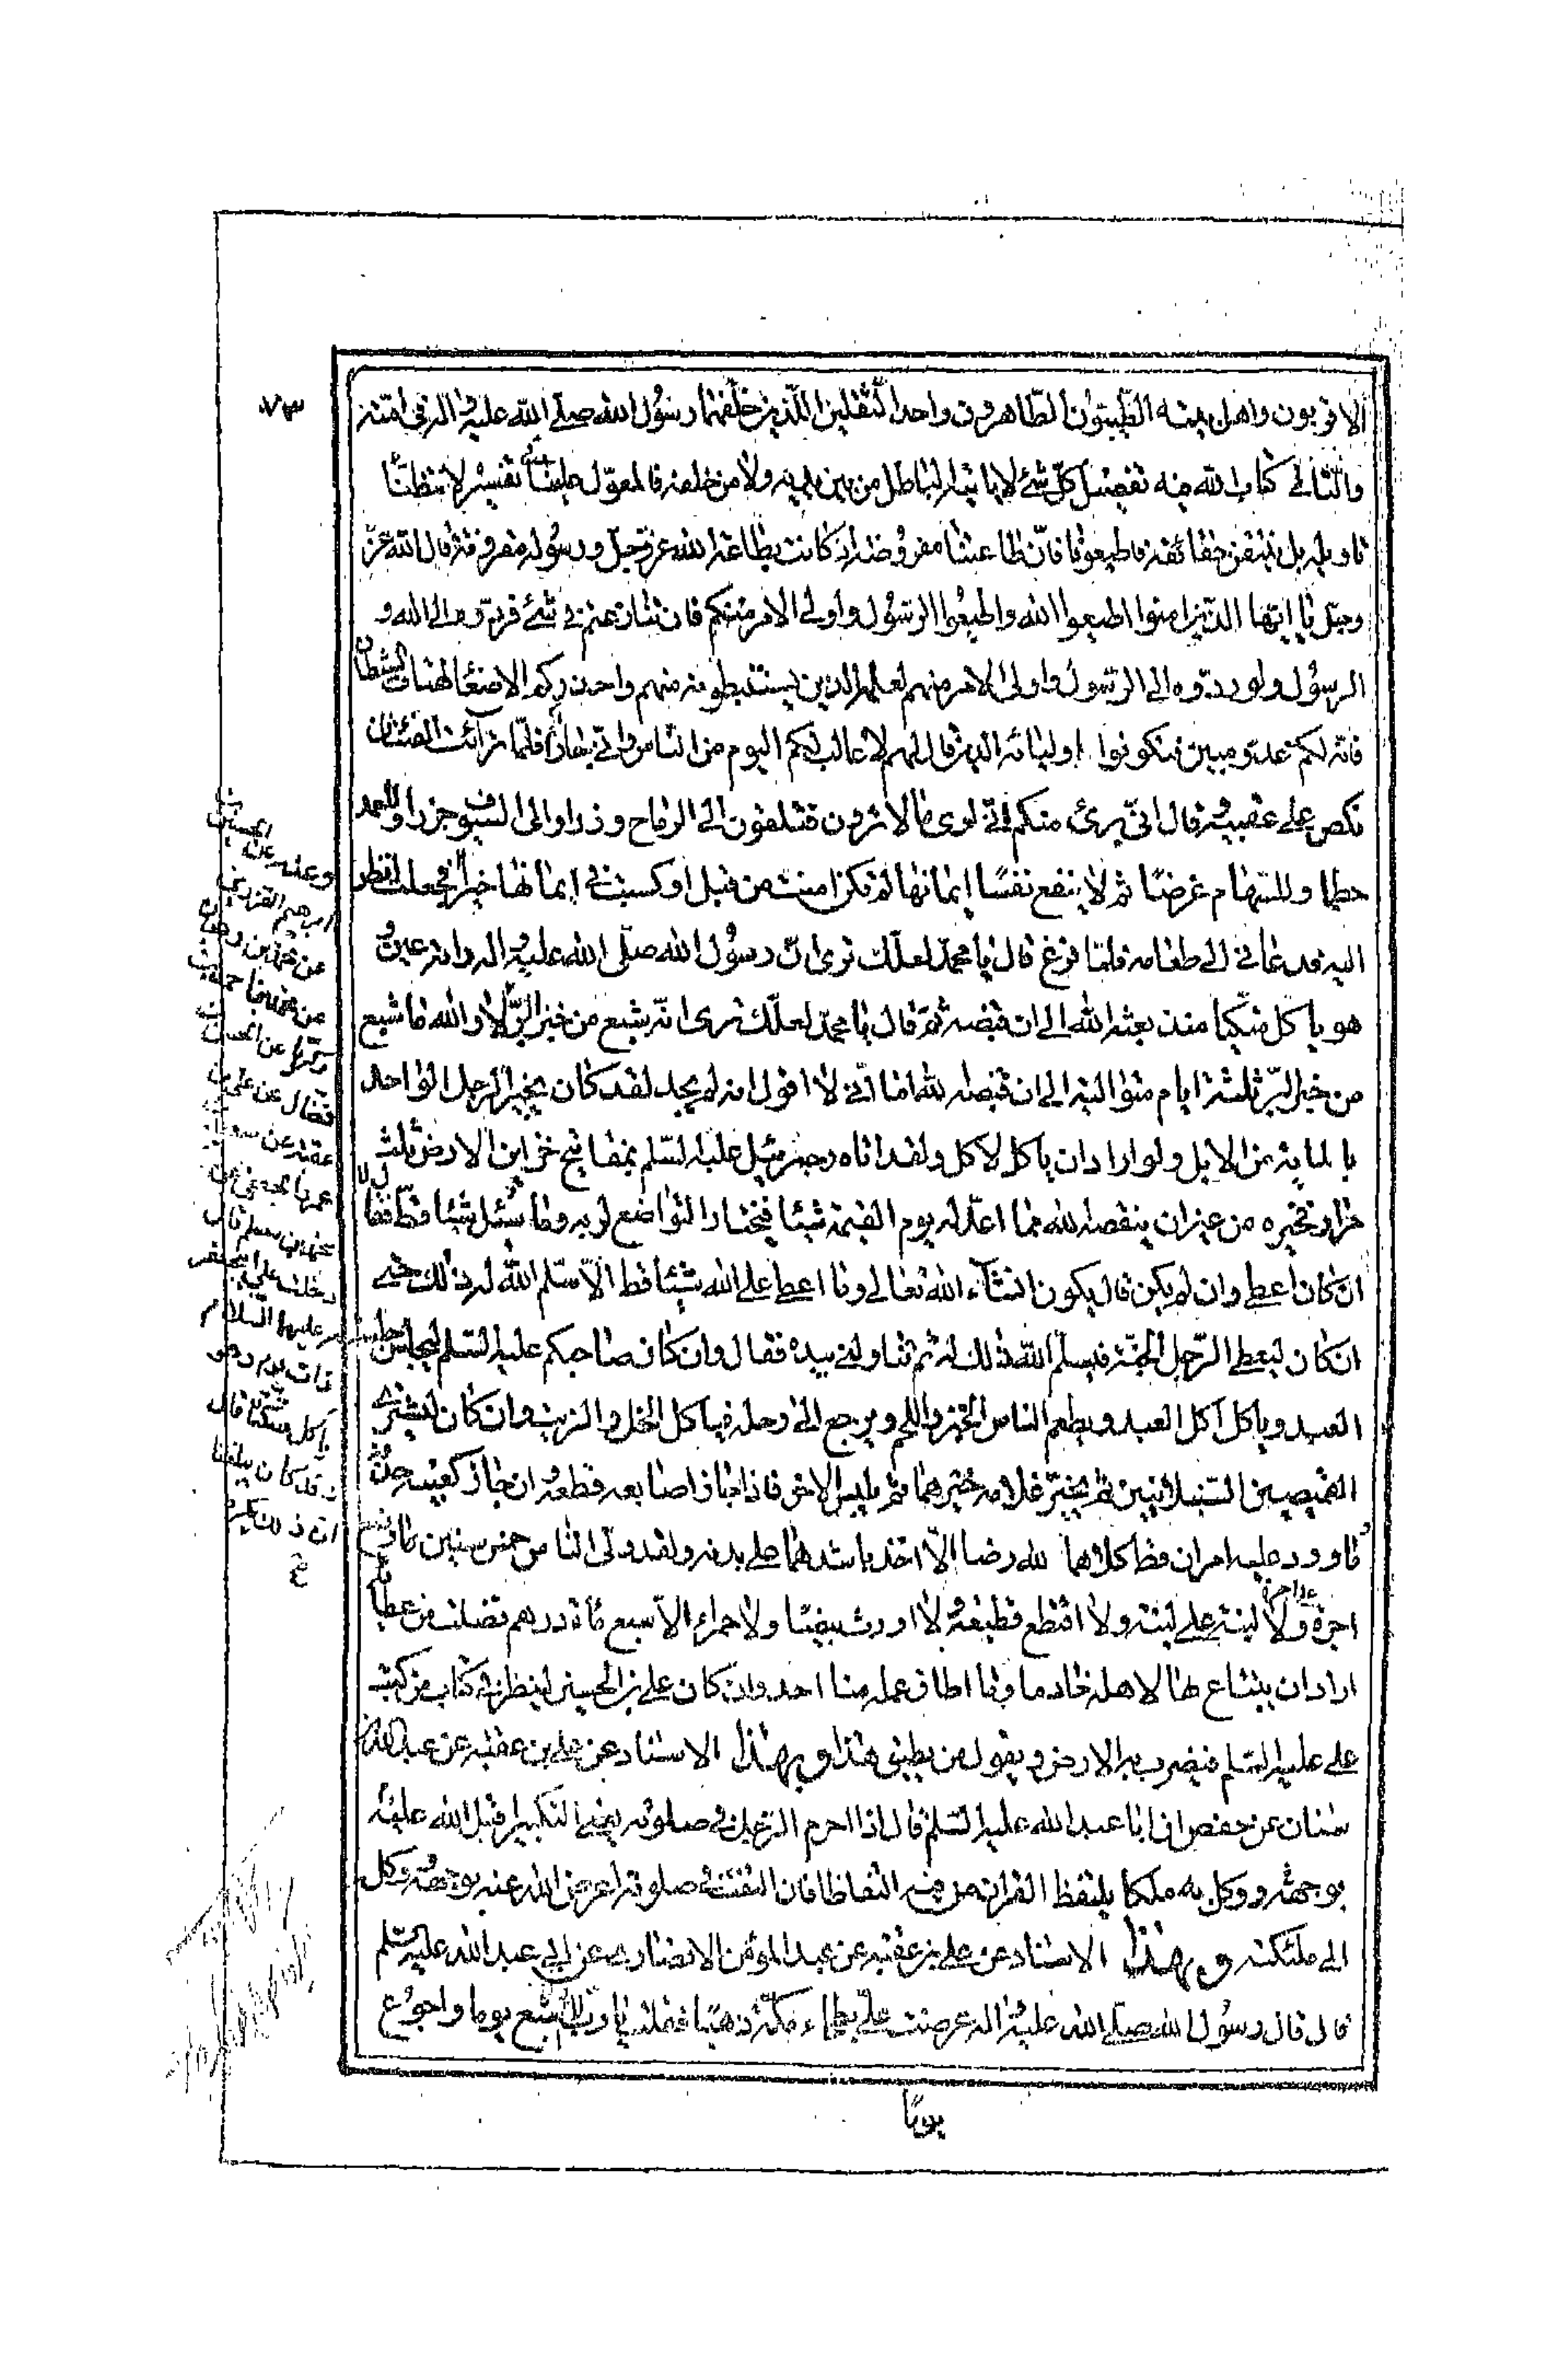 ٧٣
الاقربون واهل بيته الطيبون الطاهرون واحد الثقلين اللذين خلفهما رسول الله صلى الله عليه واله في امته
والثاني كتاب الله فيه تفصيل كل شئ لا ياتيه الباطل من بين يديه ولا من خلفه فالمعول علينا في تفسيره لا نتظنا
تاويله بل نتيقن حقائقه فاطيعونا فان طاعتنا مفروضة اذ كانت بطاعة الله عز وجل ورسوله مقرونة قال الله عز
وجل يا ايها الذين امنوا اطيعوا الله واطيعوا الرسول واولي الامر منكم فان تنازعتم في شئ فردوه الى الله و
الرسول ولو ردوه الى الرسول واولى الامر منهم لعلمه الذين يستنبطونه منهم واحذركم الاصغا لهتاف الشيطان
فانه لكم عدو مبين فتكونوا اوليائه الذين قال لهم لا غالب لكم اليوم من الناس واني جار لكم فلما ترائت الفئتان
نكص على عقبيه وقال اني برئ منكم اني ارى ما لا ترون فتلقون الى الرماح وزرا والى السيوف جزرا وللعمد
حطما وللسهام غرضا ثم لا ينفع نفسا ايمانها لم تكن امنت من قبل او كسبت في ايمانها خيرا فجعلت انظر
اليه فدعاني الى طعامه فلما فرغ قال يا محمد لعلك ترى ان رسول الله صلى الله عليه واله راته عين و
هو ياكل متكيا منذ بعثه الله الى ان قبضه ثم قال يا محمد لعلك ترى انه يشبع من خبز البر لا والله ما شبع
من خبز البر ثلثة ايام متوالية الى ان قبضه الله اما اني لا اقول انه لم يجد لقد كان يجيز الرجل الواحد
بالماية من الابل ولو اراد ان ياكل لاكل ولقد اتاه جبرئيل عليه السلم بمفاتيح خزاين الارض ثلث
مرار تخيره من غير ان ينقصه الله مما اعد له يوم القيمة شيئا فيختار التواضع لربه وما سئل شيئا قط فقال لا
ان كان اعطى وان لم يكن قال يكون انشاء الله تعالى وما اعطى على الله شيئا قط الا سلم الله له ذلك حتى
ان كان ليعطي الرجل الجنة فيسلم الله ذلك له ثم تناولني بيده فقال وان كان صاحبكم عليه السلم ليجلس جلسة
العبد وياكل اكل العبد ويطعم الناس الخبز واللحم ويرجع الى رحله فياكل الخل والزيت وان كان ليشتري
القميصين السنبلانيين ثم يخير غلامه خيرهما ثم يلبس الاخر فاذا جاز اصابعه قطعه وان جاز كعبيه حذفه
وما ورد عليه امران قط كلاهما لله رضا الا اخذ باشدهما على بدنه ولقد ولى الناس خمس سنين ما وضع
اجرة على اجرة ولا لبنة على لبنة ولا اقطع قطيعة ولا اورث بيضا ولا حمراء الا سبع مائة درهم فضلت من عطاياه
اراد ان يبتاع بها لاهله خادما وما اطاق عمله منا احد وان كان علي بن الحسين لينظر في كتاب من كتب
علي عليه السلم فيضرب به الارض ويقول من يطيق هذا وبهذا الاسناد عن علي بن عقبة عن عبد الله بن
سنان عن حفص ان ابا عبد الله عليه السلم قال اذا احرم الرجل في صلوته يعني التكبير اقبل الله عليه
بوجهه ووكل به ملكا يلتقط القران من فيه التقاطا فان التفت في صلوته اعرض الله عنه بوجهه ووكله
الى ملئكته وبهذا الاسناد عن علي بن عقبة عن عبد المؤمن الانصاري عن ابي عبد الله عليه السلم
قال قال رسول الله صلى الله عليه واله عرضت علي بطحاء مكة ذهبا فقلت يا رب اشبع يوما واجوع
يوما
وعنه عن الحسين بن
ابرهيم القزويني
عن محمد بن وهبان
عن
زكريا عن الحسن بن
فضال عن علي بن
عقبة عن سعيد بن
عمرو الجعفي عن
محمد بن مسلم قال
دخلت على ابي جعفر
عليهما السلام
ذات يوم وهو
ياكل متكيا قال
وقد كان يبلغنا
ان ذلك يكره